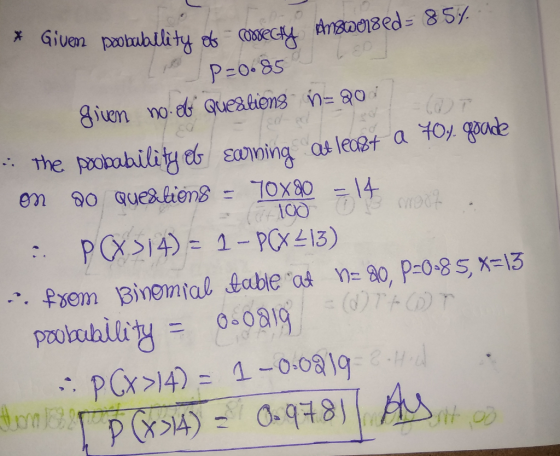 * Given probability of correcty Answersed = 85%
P=0.85
given no.of Questions n=20
∴ the probability of earning at least a 70% grade
on 20 questions = 70×20/100 = 14
∴ P(X>14) = 1 - P(X≤13)
∴ from Binomial table at n=20, P=0.85, x=13
probability = 0.0219
∴ P(X>14) = 1-0.0219
P(X>14) = 0.9781 Ans